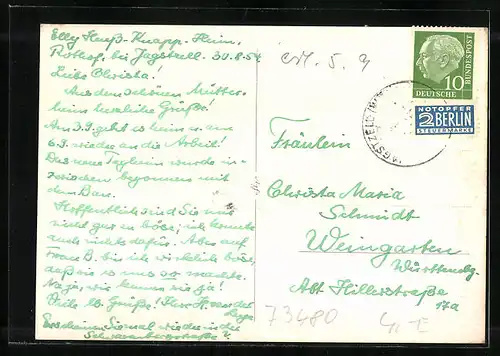 Elly Heuß-Knapp-Heim,
Rothof, bei Jagstzell. 30.8.54
Liebe Christa!
Aus dem schönen Mütter-
heim herzliche Grüße!
Am 3.9. geht es heim u. am
6.9. wieder an die Arbeit!
Das neue wurde in-
zwischen begonnen mit
dem Bau.
Hoffentlich sind Sie mir
nicht gar zu böse; ich konnte
auch nichts dafür. Aber auf
Frau B. bin ich wirklich böse,
daß sie es uns so machte.
Na ja, wir kennen sie ja!
Viele lb. Grüße! Ihre
Erscheinen Sie mal wieder in der
Schwarenbergstraße?
DEUTSCHE BUNDESPOST
10
NOTOPFER
2 BERLIN
STEUERMARKE
Fräulein
Christa Maria
Schmidt
Weingarten
Württembg.
Abt Hillerstraße
17a
73480